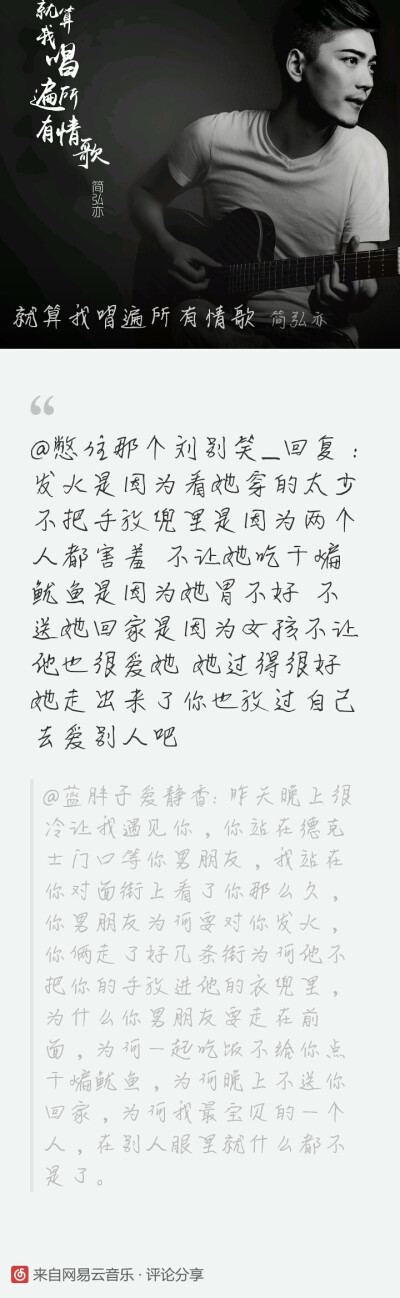 就算
我
唱
遍所
有情
歌
简弘亦
就算我唱遍所有情歌 简弘亦
@憋住那个刘别笑__回复：
发火是因为看她穿的太少
不把手放兜里是因为两个
人都害羞 不让她吃干煸
鱿鱼是因为她胃不好 不
送她回家是因为女孩不让
他也很爱她 她过得很好
她走出来了你也放过自己
去爱别人吧
@蓝胖子爱静香：昨天晚上很
冷让我遇见你，你站在德克
士门口等你男朋友，我站在
你对面街上看了你那么久，
你男朋友为何要对你发火，
你俩走了好几条街为何他不
把你的手放进他的衣兜里，
为什么你男朋友要走在前
面，为何一起吃饭不给你点
干煸鱿鱼，为何晚上不送你
回家，为何我最宝贝的一个
人，在别人眼里就什么都不
是了。
来自网易云音乐·评论分享